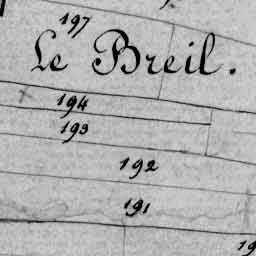 197
Le Breil.
194
193
192
191